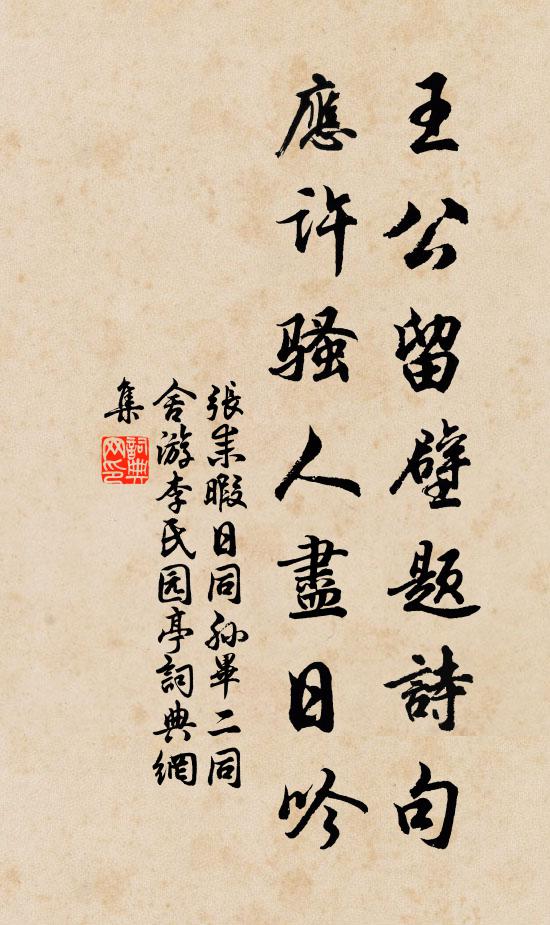 王公留壁题詩句
應許騷人盡日吟
張耒暇日同孫畢二同
舍游李民园亭詞典網
集
詞典
网印